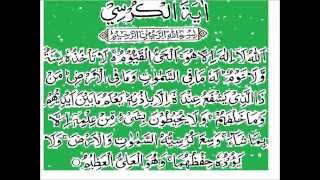 آية الكرسي
بسم الله الرحمن الرحيم
اَللّٰهُ لَا اِلٰهَ اِلَّا هُوَ الْحَيُّ الْقَيُّوْمُ لَا تَأْخُذُهٗ سِنَةٌ
وَّلَا نَوْمٌ لَهٗ مَا فِى السَّمٰوٰتِ وَمَا فِى الْاَرْضِ مَنْ
ذَا الَّذِيْ يَشْفَعُ عِنْدَهٗ اِلَّا بِاِذْنِهٖ يَعْلَمُ مَا بَيْنَ اَيْدِيْهِمْ
وَمَا خَلْفَهُمْ وَلَا يُحِيْطُوْنَ بِشَيْءٍ مِّنْ عِلْمِهٖ اِلَّا
بِمَا شَاءَ وَسِعَ كُرْسِيُّهُ السَّمٰوٰتِ وَالْاَرْضَ وَلَا
يَؤُدُهٗ حِفْظُهُمَا وَهُوَ الْعَلِيُّ الْعَظِيْمُ